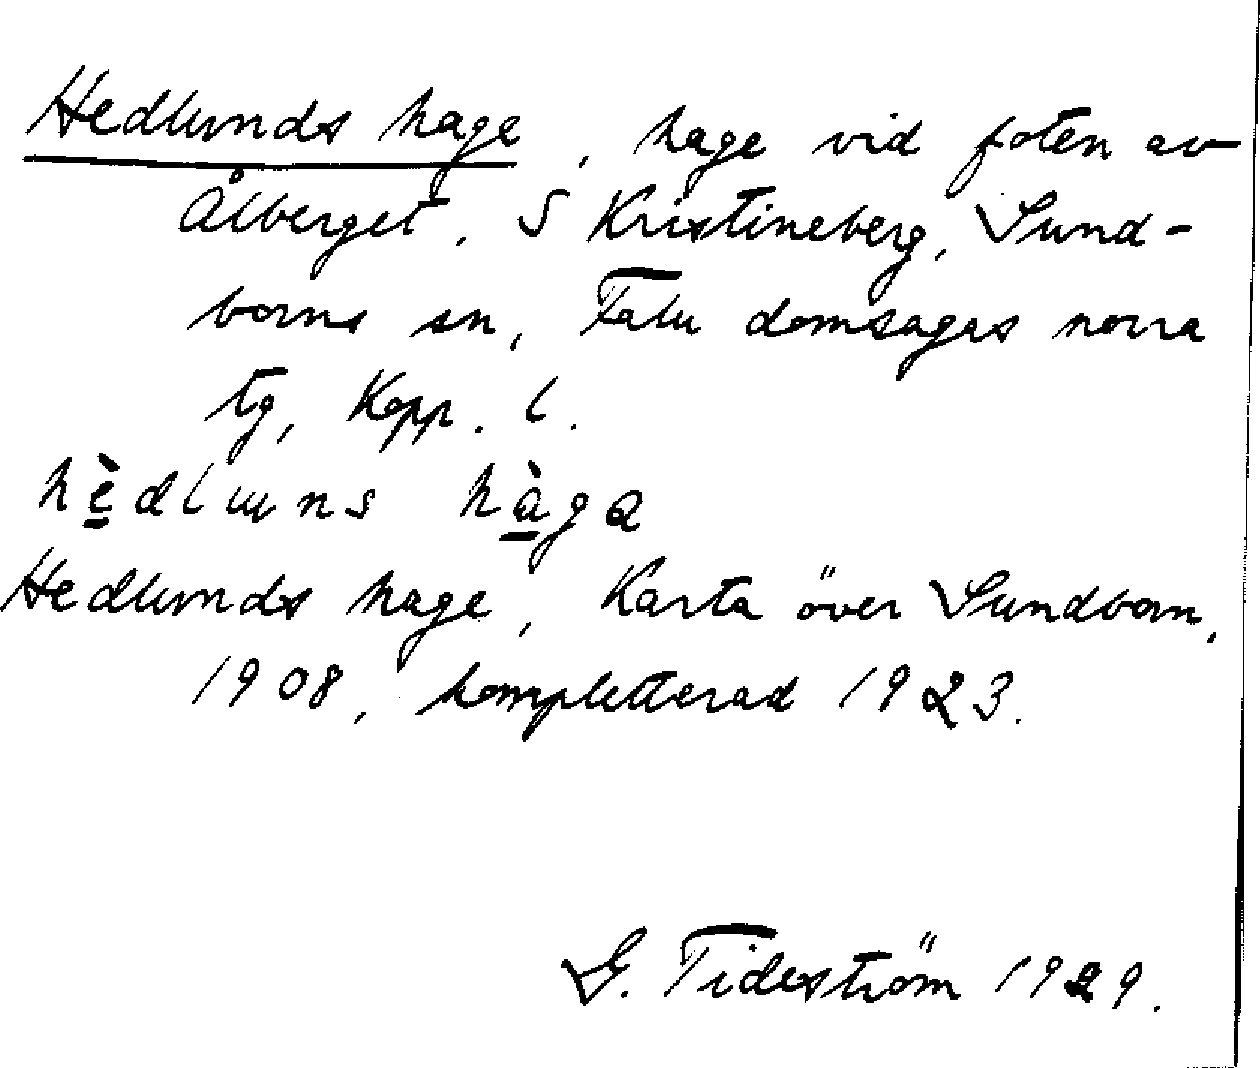 Hedlunds hage, hage vid foten av
Ålberget, S Kristineberg, Sund-
borns sn, Falu domsagas norra
tg, Kopp. l.
hèdlɯns hàga
Hedlunds hage, Karta över Sundborn,
1908, kompletterad 1923.
G. Tideström 1929.